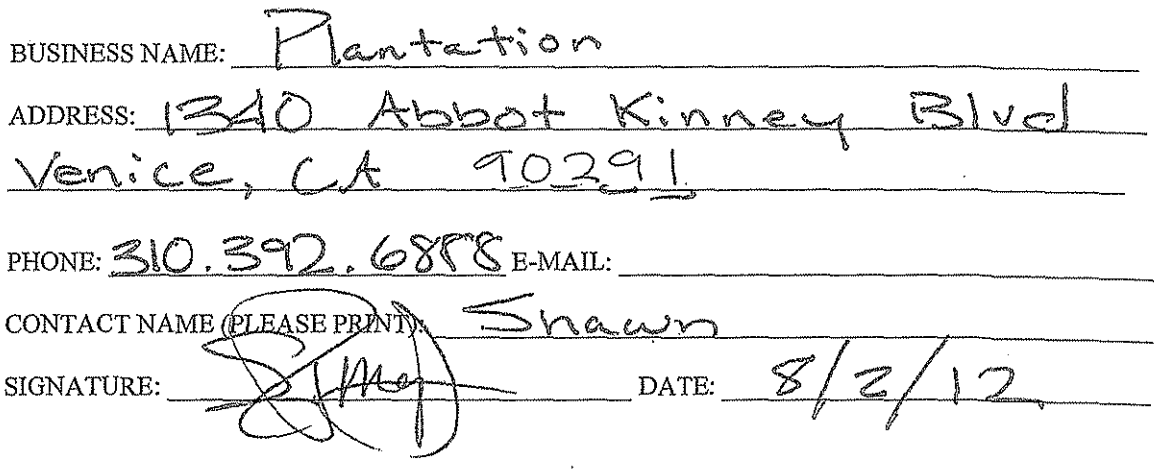 BUSINESS NAME: Plantation
ADDRESS: 1340 Abbot Kinney Blvd
Venice, CA 90291
PHONE: 310.392.6888 E-MAIL:
CONTACT NAME (PLEASE PRINT): Shawn
SIGNATURE: DATE: 8/2/12